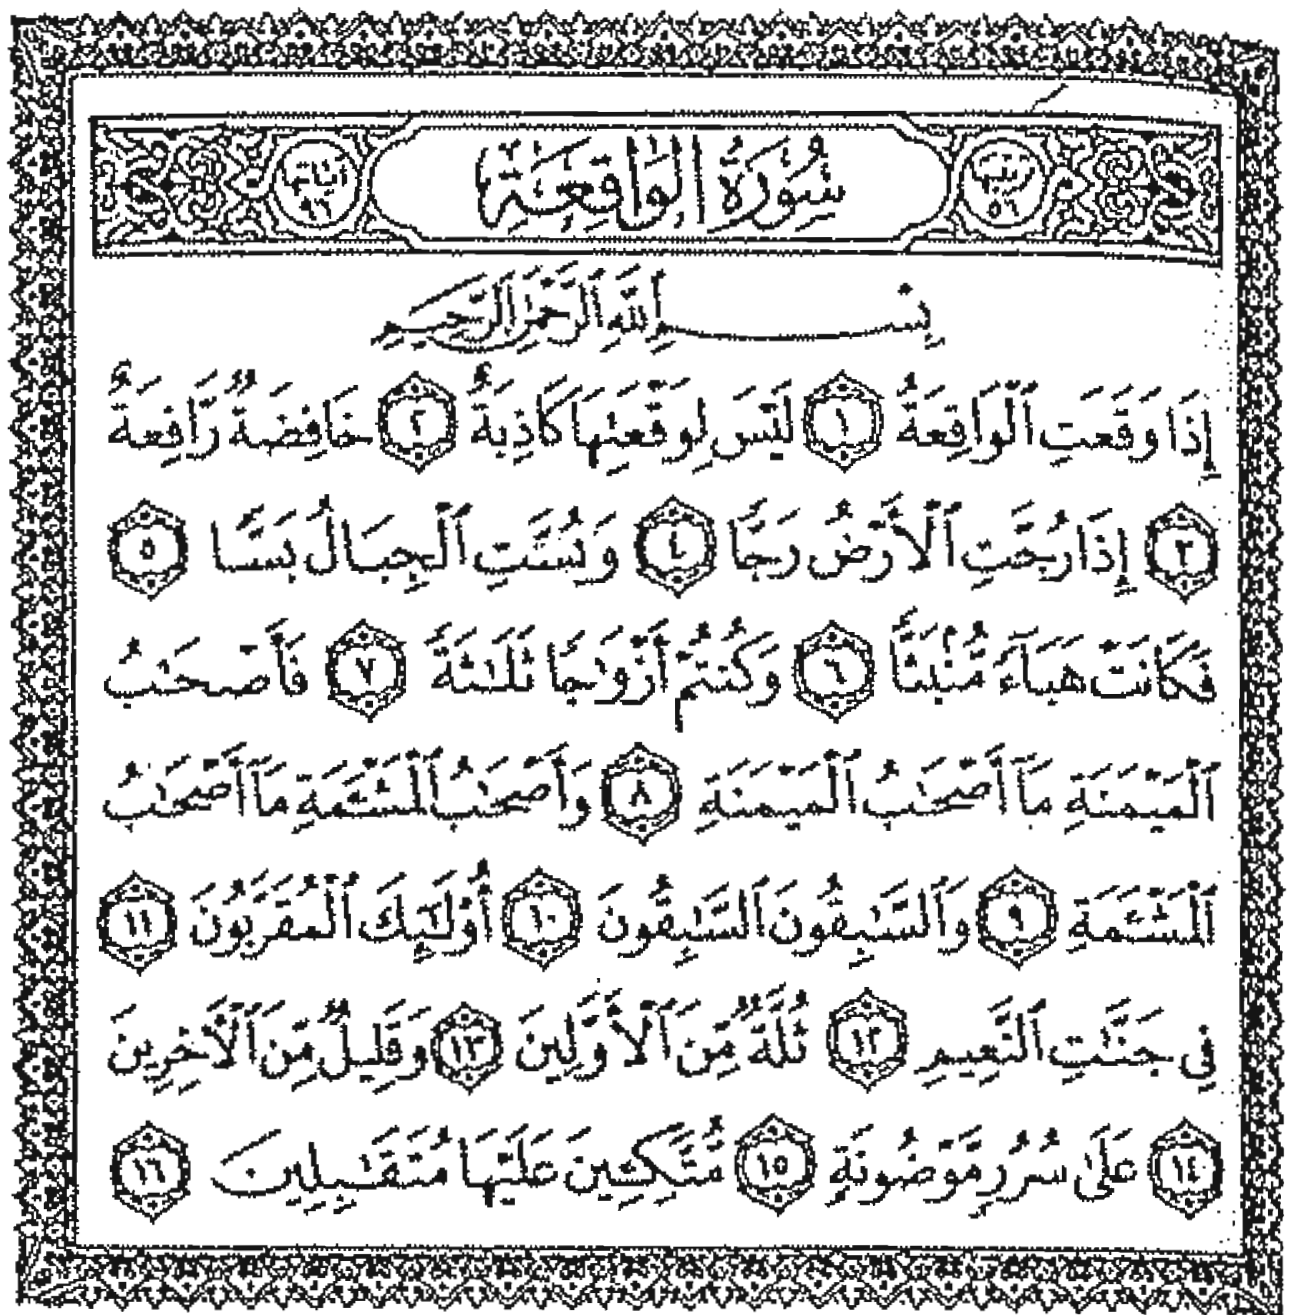 ترتيبها ٥٦ سُورَةُ الْوَاقِعَةِ آياتها ٩٦
بِسْمِ ٱللَّهِ ٱلرَّحْمَٰنِ ٱلرَّحِيمِ
إِذَا وَقَعَتِ ٱلْوَاقِعَةُ ١ لَيْسَ لِوَقْعَتِهَا كَاذِبَةٌ ٢ خَافِضَةٌ رَّافِعَةٌ
٣ إِذَا رُجَّتِ ٱلْأَرْضُ رَجًّا ٤ وَبُسَّتِ ٱلْجِبَالُ بَسًّا ٥
فَكَانَتْ هَبَآءً مُّنۢبَثًّا ٦ وَكُنتُمْ أَزْوَٰجًا ثَلَٰثَةً ٧ فَأَصْحَٰبُ
ٱلْمَيْمَنَةِ مَآ أَصْحَٰبُ ٱلْمَيْمَنَةِ ٨ وَأَصْحَٰبُ ٱلْمَشْـَٔمَةِ مَآ أَصْحَٰبُ
ٱلْمَشْـَٔمَةِ ٩ وَٱلسَّٰبِقُونَ ٱلسَّٰبِقُونَ ١٠ أُو۟لَٰٓئِكَ ٱلْمُقَرَّبُونَ ١١
فِى جَنَّٰتِ ٱلنَّعِيمِ ١٢ ثُلَّةٌ مِّنَ ٱلْأَوَّلِينَ ١٣ وَقَلِيلٌ مِّنَ ٱلْـَٔاخِرِينَ
١٤ عَلَىٰ سُرُرٍ مَّوْضُونَةٍ ١٥ مُّتَّكِـِٔينَ عَلَيْهَا مُتَقَٰبِلِينَ ١٦